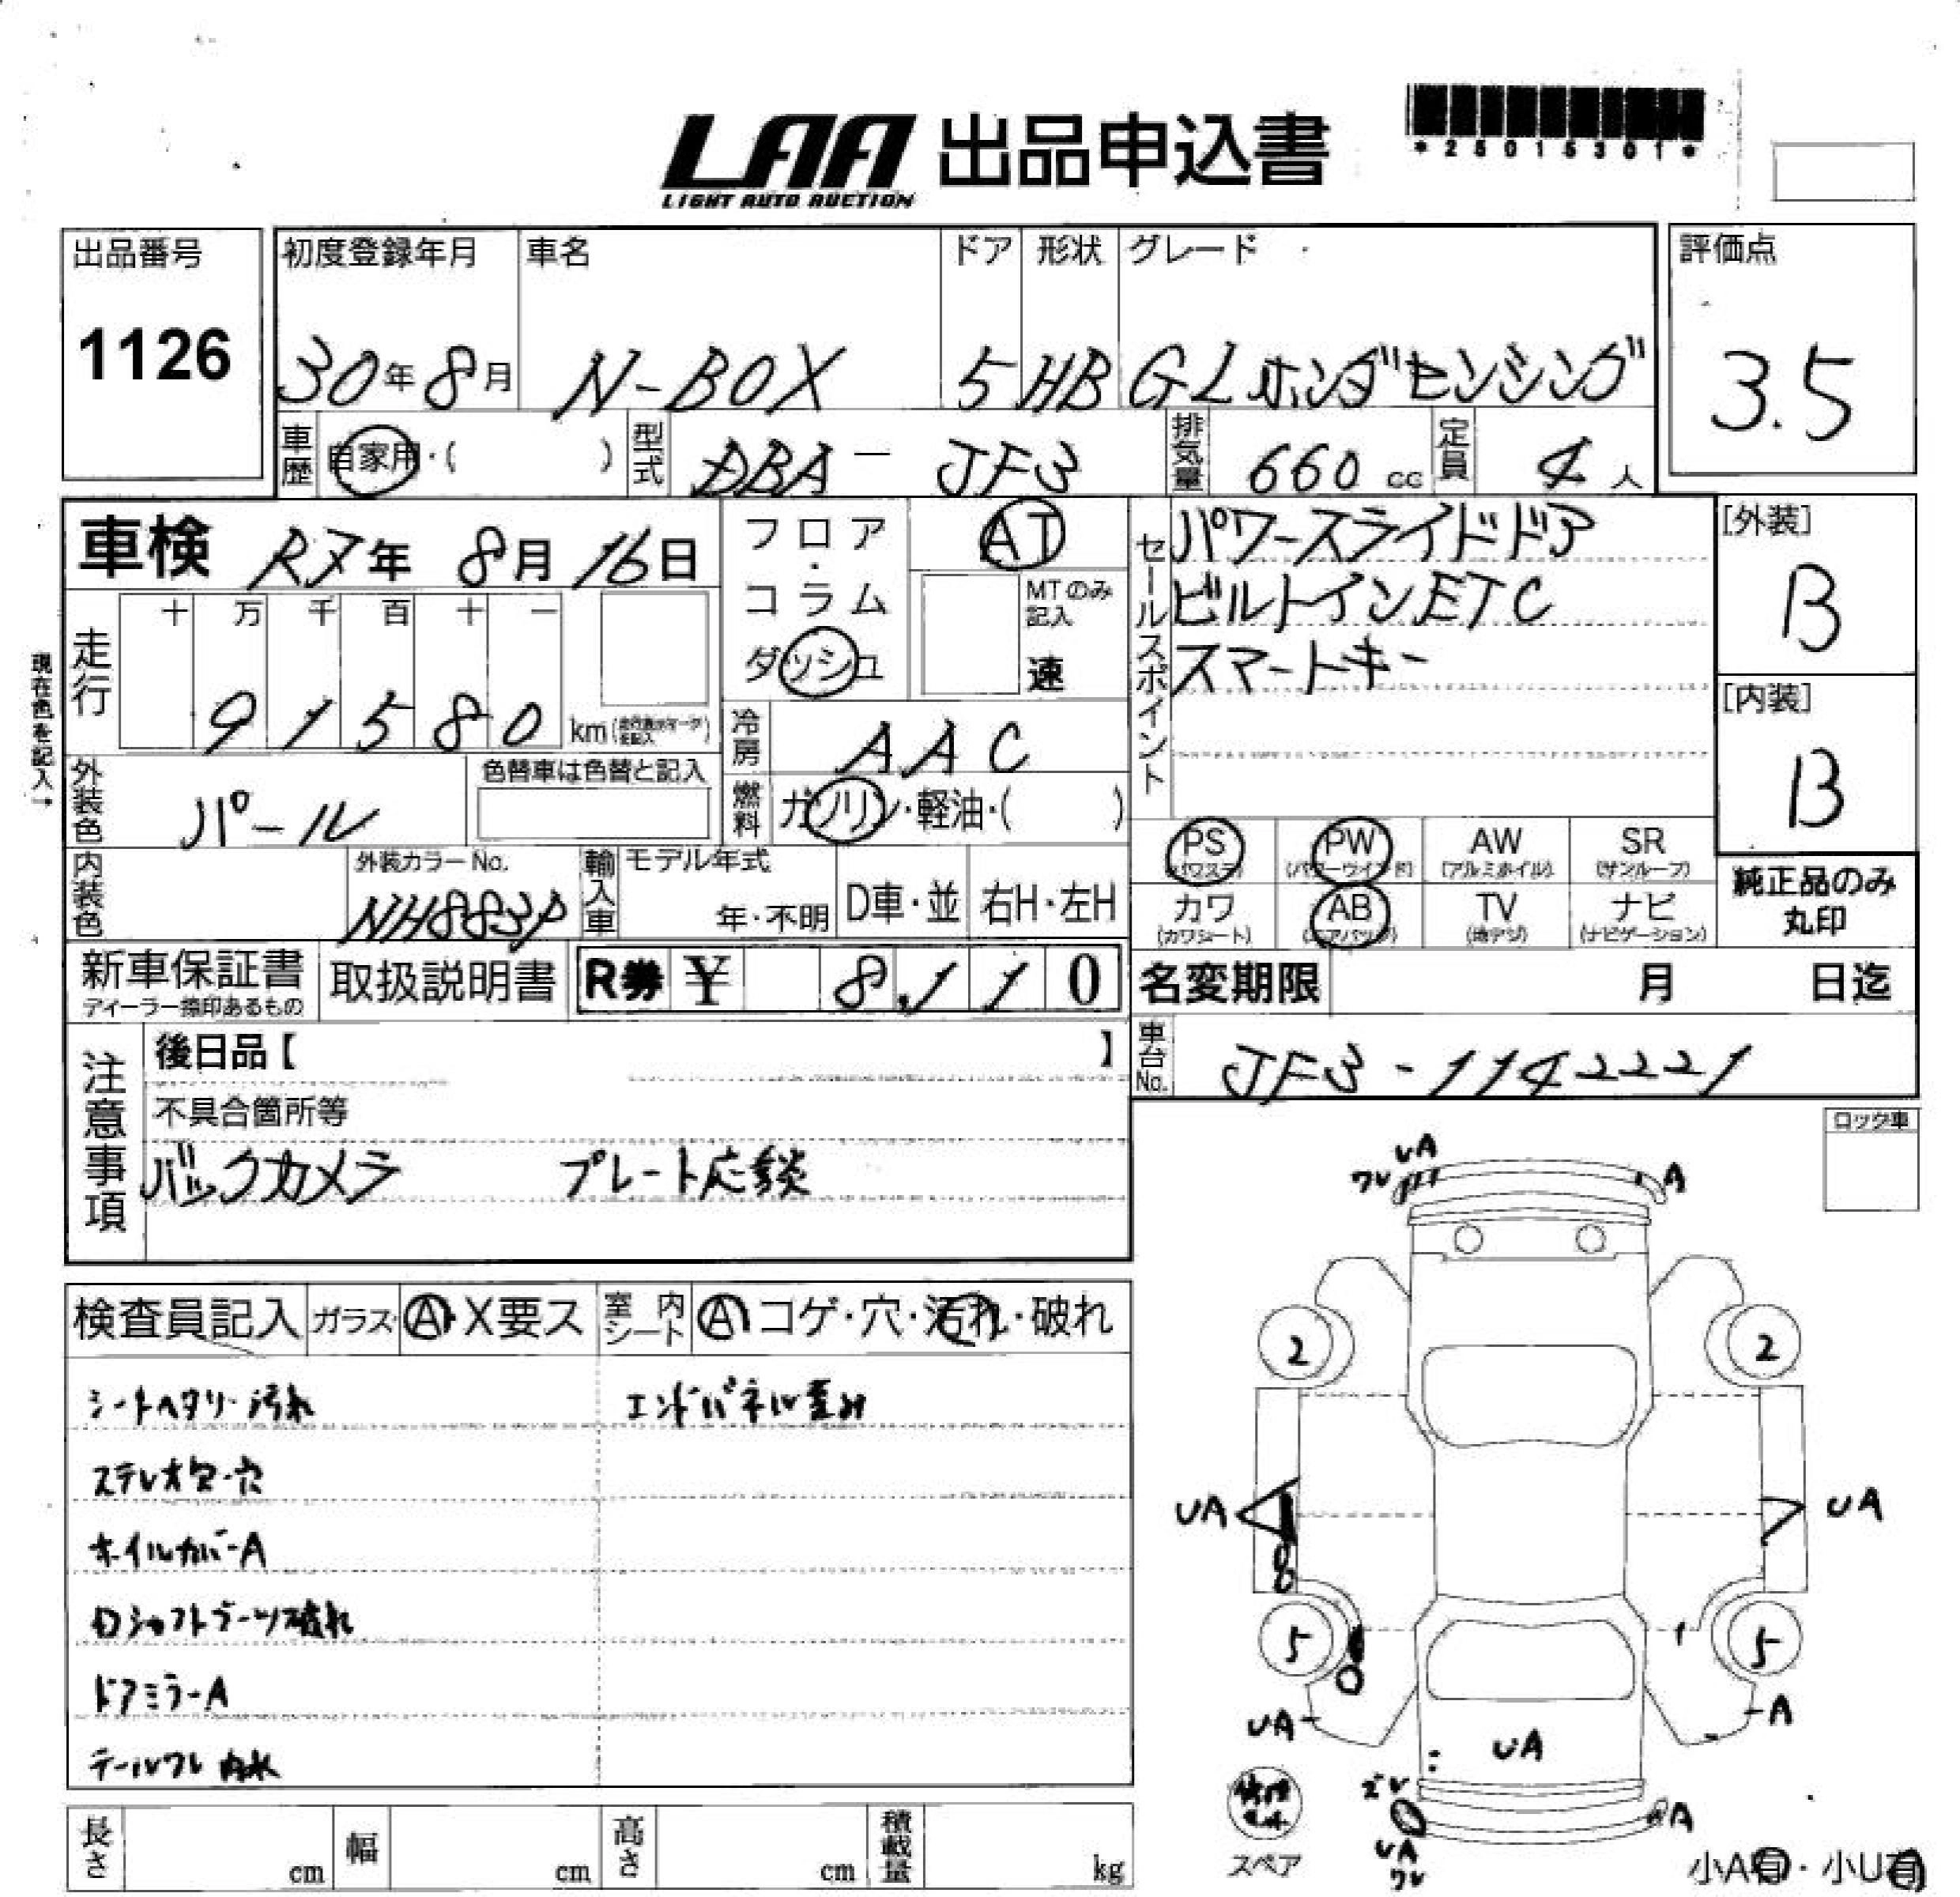 LAA 出品申込書
LIGHT AUTO AUCTION
*25015301*
出品番号
1126
初度登録年月
30年8月
車名
N-BOX
ドア
5
形状
HB
グレード
GLホンダセンシング
評価点
3.5
車歴
自家用・( )
型式
DBA - JF3
排気量
660 cc
定員
4人
車検 R7年 8月 16日
フロア・コラム
ダッシュ
AT
MTのみ記入
速
セールスポイント
パワースライドドア
ビルトインETC
スマートキー
[外装]
B
[内装]
B
現在色を記入→
走行
十 万 千 百 十 一
9 1 5 8 0 km
冷房
AAC
外装色
パール
色替車は色替と記入
燃料
ガソリン・軽油・( )
内装色
外装カラーNo.
NH883P
輸入車
モデル年式
年・不明
D車・並
右H・左H
PS
(パワステ)
PW
(パワーウインド)
AW
(アルミホイル)
SR
(サンルーフ)
カワ
(カワシート)
AB
(エアバッグ)
TV
(地デジ)
ナビ
(ナビゲーション)
純正品のみ
丸印
新車保証書
ディーラー捺印あるもの
取扱説明書
R券 ¥ 8,110
名変期限 月 日迄
車台No.
JF3-1142221
注意事項
後日品【 】
不具合箇所等
バックカメラ プレート応談
ロック車
検査員記入
ガラス
A・X要ス
室内シート
A コゲ・穴・汚れ・破れ
シートヘタリ・汚れ
エンドパネル歪み
ステレオ欠・穴
ホイルカバーA
Dシャフトブーツ破れ
ドアミラーA
テールワレ 内水
UA
ワレ
A
2
2
UA
UA
5
5
UA
A
UA
ズレ
A
UA
ワレ
修理キット
スペア
小A有・小U有
長さ cm
幅 cm
高さ cm
積載量 kg